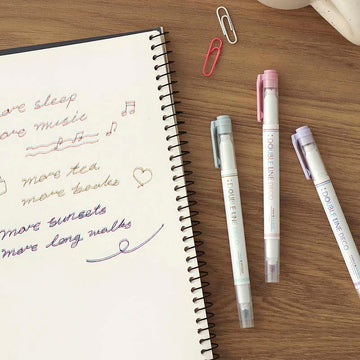 more sleep
more music
more tea
more books
more sunsets
more long walks
DOUBLE LINE DECO
DOUBLE LINE DECO
DOUBLE LINE DECO